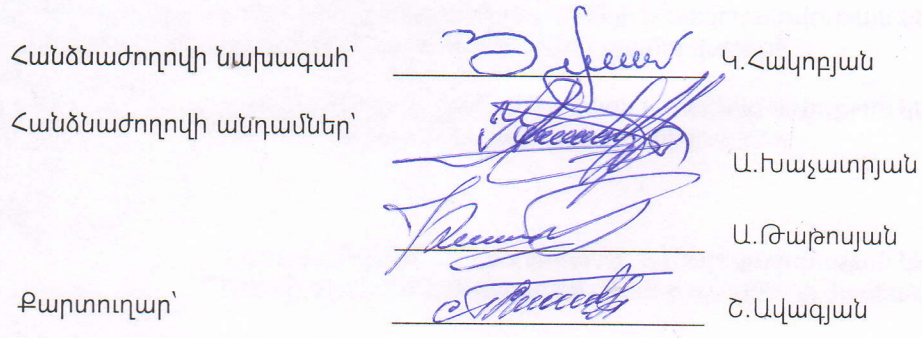 Հանձնաժողովի նախագահ՝ Կ.Հակոբյան
Հանձնաժողովի անդամներ՝
Ա.Խաչատրյան
Ա.Թաթոսյան
Քարտուղար՝ Շ.Ավագյան